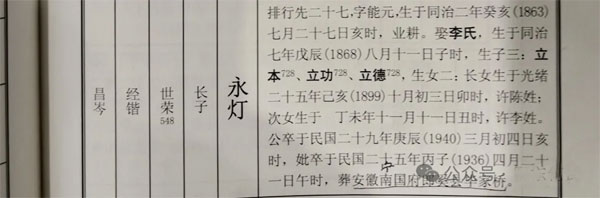 排行先二十七,字能元,生于同治二年癸亥(1863)
七月二十七日亥时,业耕。娶李氏,生于同治
七年戊辰(1868)八月十一日子时,生子三:立
本728、立功728、立德728,生女二:长女生于光绪
二十五年己亥(1899)十月初三日卯时,许陈姓;
次女生于 丁未年十一月十一日丑时,许李姓。
公卒于民国二十九年庚辰(1940)三月初四日亥
时,妣卒于民国二十五年丙子(1936)四月二十
一日午时,葬安徽南国府
宁
永灯
长子
世荣548
经锴
昌岑
公众号